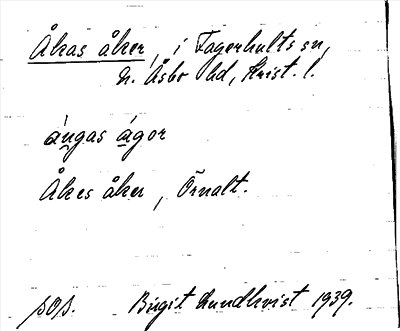 Åkas åker, i Fagerhults sn,
N. Åsbo hd, Krist. l.
ángas ágor
Åkes åker, Örnalt.
sos. Birgit Lundkvist 1939.